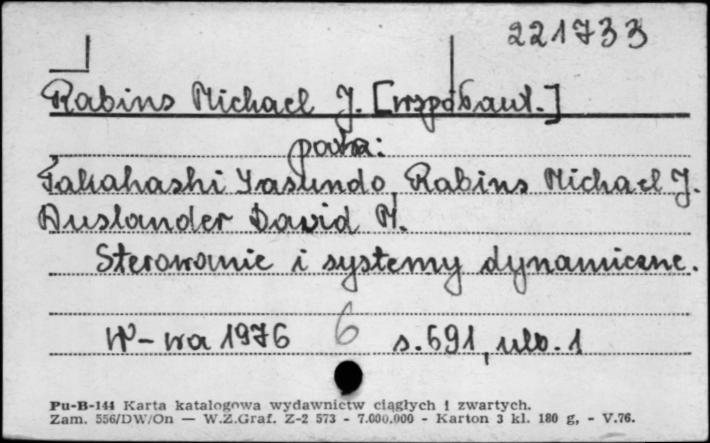 221733
Rabins Michael J. [współaut.]
patrz:
Takahashi Yasundo, Rabins Michael J.
Auslander David M.
Sterowanie i systemy dynamiczne.
W-wa 1976 6 s. 691, ulb. 1
Pu-B-144 Karta katalogowa wydawnictw ciągłych i zwartych.
Zam. 556/DW/On — W.Z.Graf. Z-2 573 - 7.000.000 - Karton 3 kl. 180 g, - V.76.